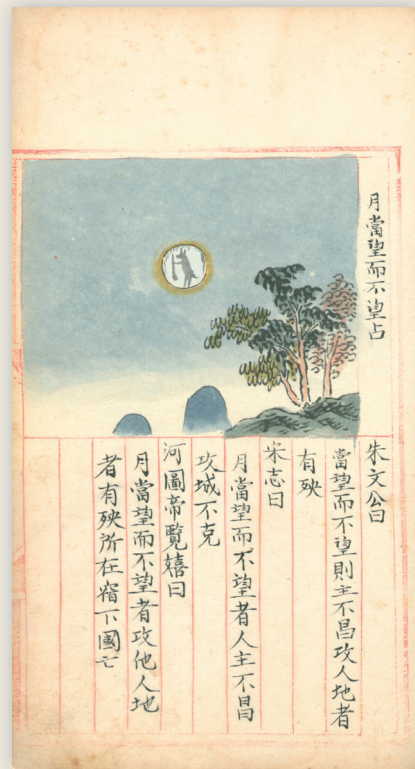 月當望而不望占
朱文公曰
當望而不望則主不昌攻人地者
有殃
宋志曰
月當望而不望者人主不昌
攻城不克
河圖帝覽嬉曰
月當望而不望者攻他人地
者有殃所在宿下國亡